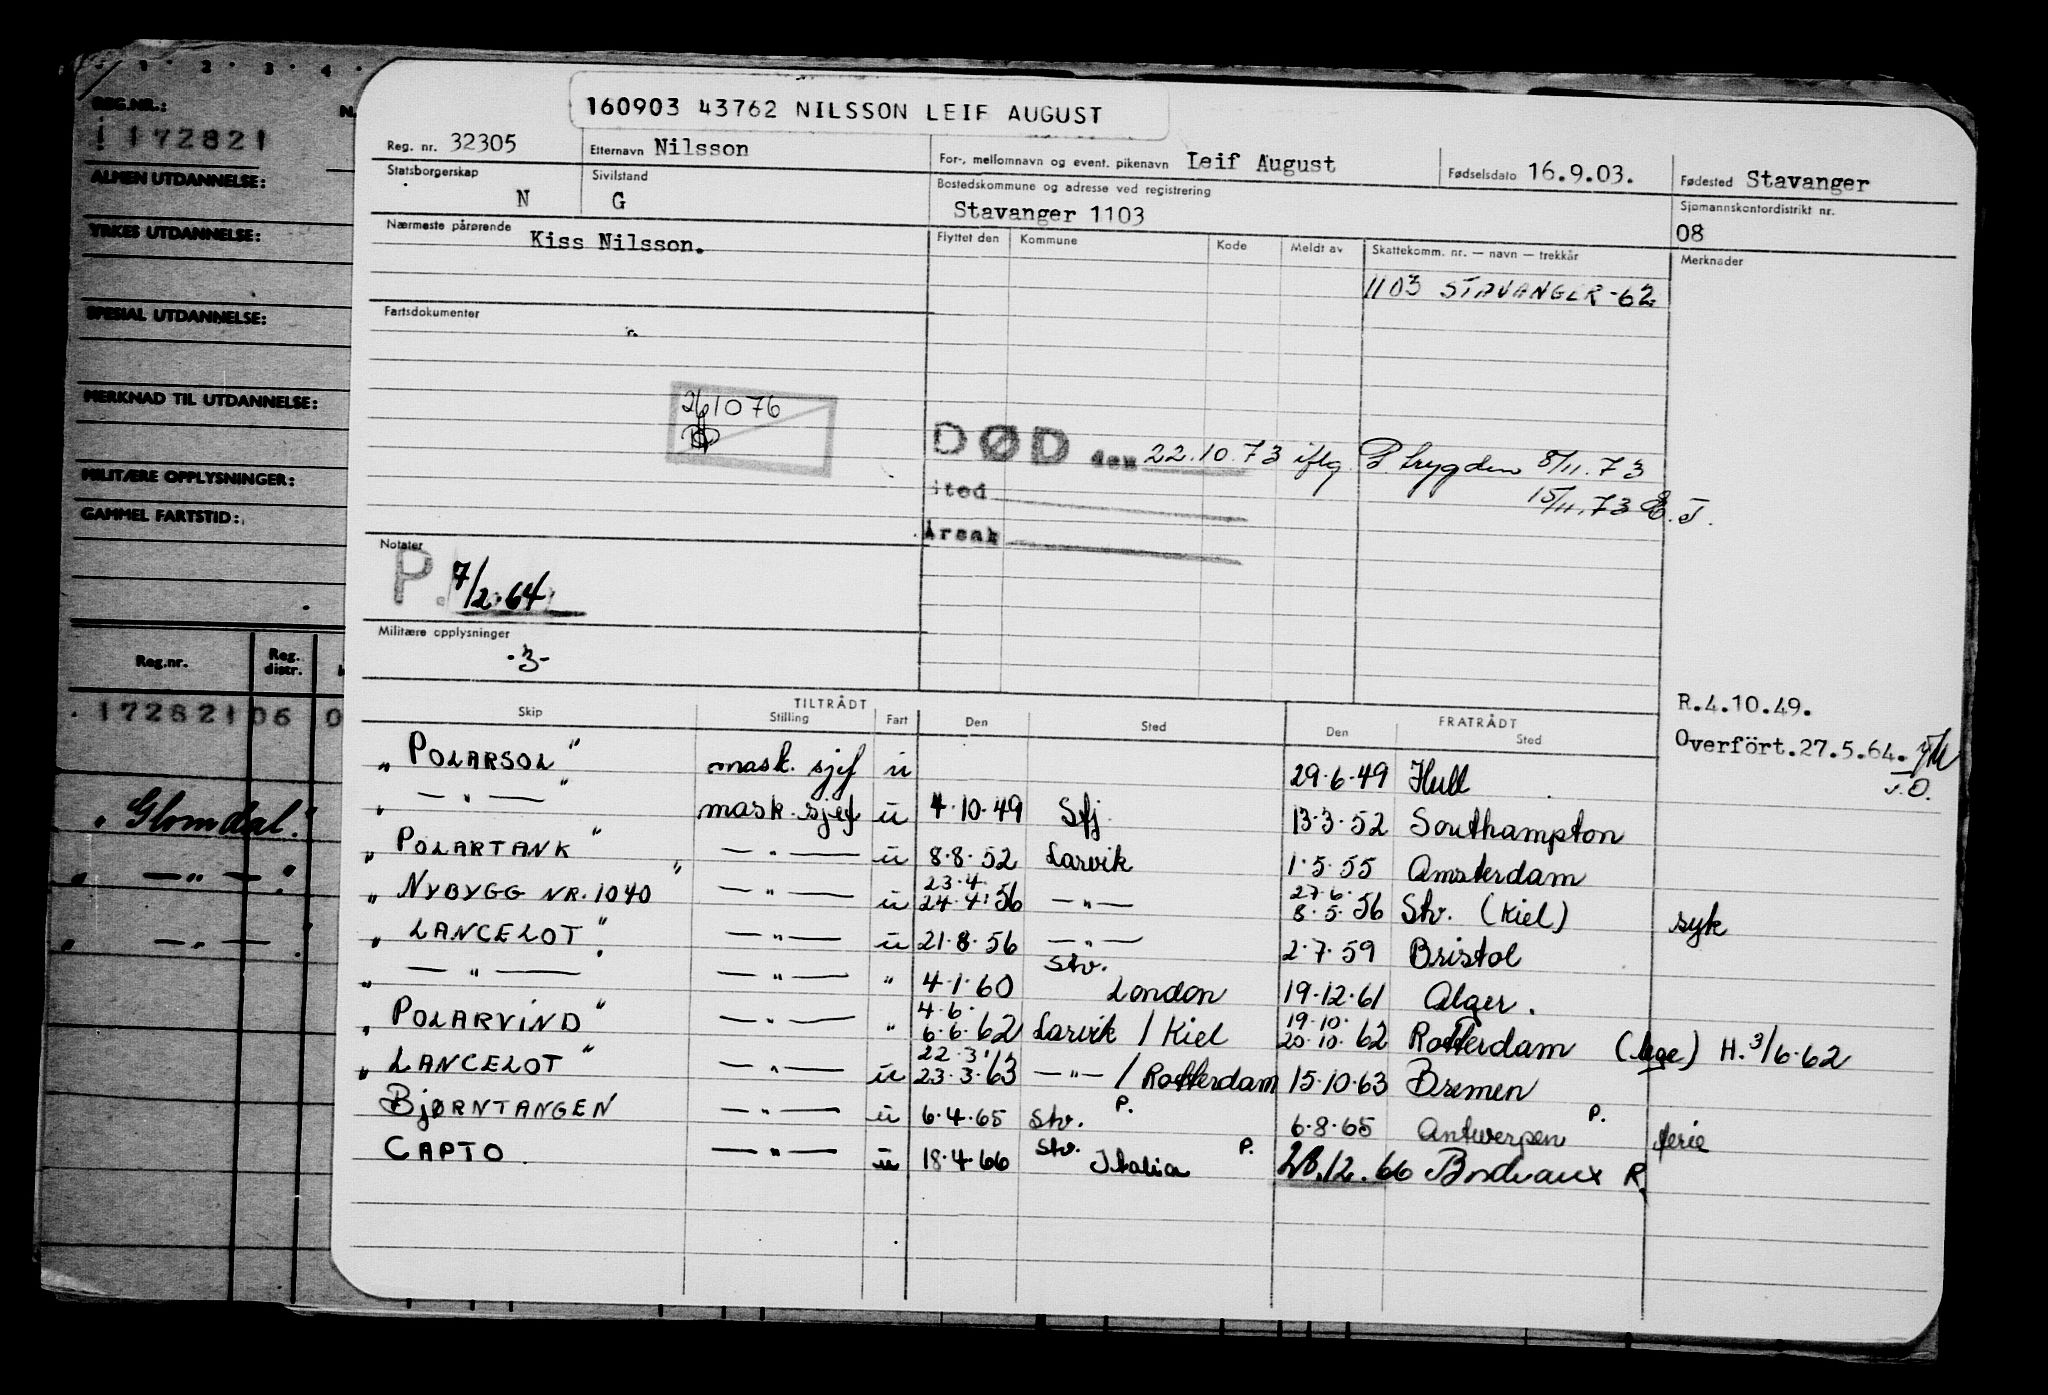 1 · 2 · 3 · 4 ·
REG.NR.:
172821
ALMEN UTDANNELSE:
YRKES UTDANNELSE:
SPESIAL UTDANNELSE:
MERKNAD TIL UTDANNELSE:
MILITÆRE OPPLYSNINGER:
GAMMEL FARTSTID:
Reg.nr. Reg. distr.
172821 06 0
"Glomdal"
" —"— "
" —"— "
160903 43762 NILSSON LEIF AUGUST
Reg. nr. 32305 Etternavn Nilsson For-, mellomnavn og event. pikenavn Leif August Fødselsdato 16.9.03. Fødested Stavanger
Statsborgerskap N Sivilstand G Bostedskommune og adresse ved registrering Stavanger 1103 Sjømannskontordistrikt nr. 08
Nærmeste pårørende Kiss Nilsson. Flyttet den Kommune Kode Meldt av Skattekomm. nr. — navn — trekkår Merknader
1103 STAVANGER -62
Fartsdokumenter
261076
DØD den 22.10.73 iflg. P trygden 8/11.73
sted 15/11.73 E.J.
Årsak
Notater
P. 7/2.64
Militære opplysninger
-3-
R.4.10.49.
Overfört.27.5.64.
TILTRÅDT FRATRÅDT
Skip Stilling Fart Den Sted Den Sted
"POLARSOL" mask. sjef u 29.6.49 Hull
" —"— " mask. sjef u 4.10.49 Sfj. 13.3.52 Southampton
"POLARTANK" —"— u 8.8.52 Larvik 1.5.55 Amsterdam
"NYBYGG NR. 1040" —"— u 23.4. 24.4.56 —"— 27.6. 8.5.56 Stv. (Kiel) syk
"LANCELOT" —"— u 21.8.56 —"— 2.7.59 Bristol
" —"— " —"— " 4.1.60 Stv. London 19.12.61 Alger.
"POLARVIND" —"— " 4.6. 6.6.62 Larvik / Kiel 19.10. 20.10.62 Rotterdam (lege) H. 3/6.62
"LANCELOT" —"— u 22.3. 23.3.63 —"— / Rotterdam 15.10.63 Bremen
BJØRNTANGEN —"— u 6.4.65 Stv. P. 6.8.65 Antwerpen P. ferie
CAPTO —"— u 18.4.66 Stv. Italia P. 28.12.66 Bordeaux R.